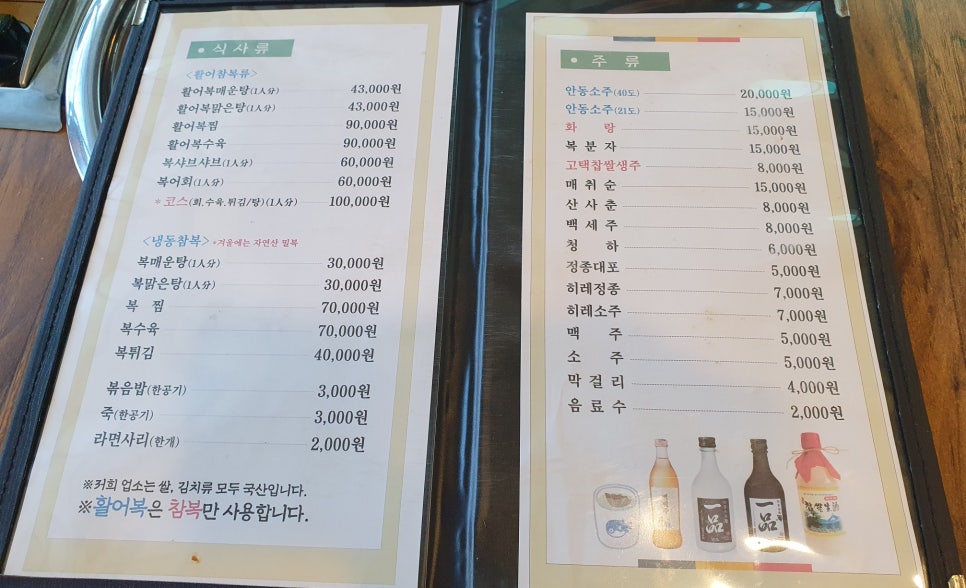 • 식 사 류
<활어참복류>
활어복매운탕(1人分) 43,000원
활어복맑은탕(1人分) 43,000원
활어복찜 90,000원
활어복수육 90,000원
복샤브샤브(1人分) 60,000원
복어회(1人分) 60,000원
*코스(회.수육.튀김/탕)(1人分) 100,000원
<냉동참복> *겨울에는 자연산 밀복
복매운탕(1人分) 30,000원
복맑은탕(1人分) 30,000원
복 찜 70,000원
복수육 70,000원
복튀김 40,000원
볶음밥(한공기) 3,000원
죽(한공기) 3,000원
라면사리(한개) 2,000원
※저희 업소는 쌀, 김치류 모두 국산입니다.
※활어복은 참복만 사용합니다.
• 주 류
안동소주(40도) 20,000원
안동소주(21도) 15,000원
화 랑 15,000원
복 분 자 15,000원
고택찹쌀생주 8,000원
매 취 순 15,000원
산 사 춘 8,000원
백 세 주 8,000원
청 하 6,000원
정종대포 5,000원
히레정종 7,000원
히레소주 7,000원
맥 주 5,000원
소 주 5,000원
막 걸 리 4,000원
음 료 수 2,000원
一品
一品